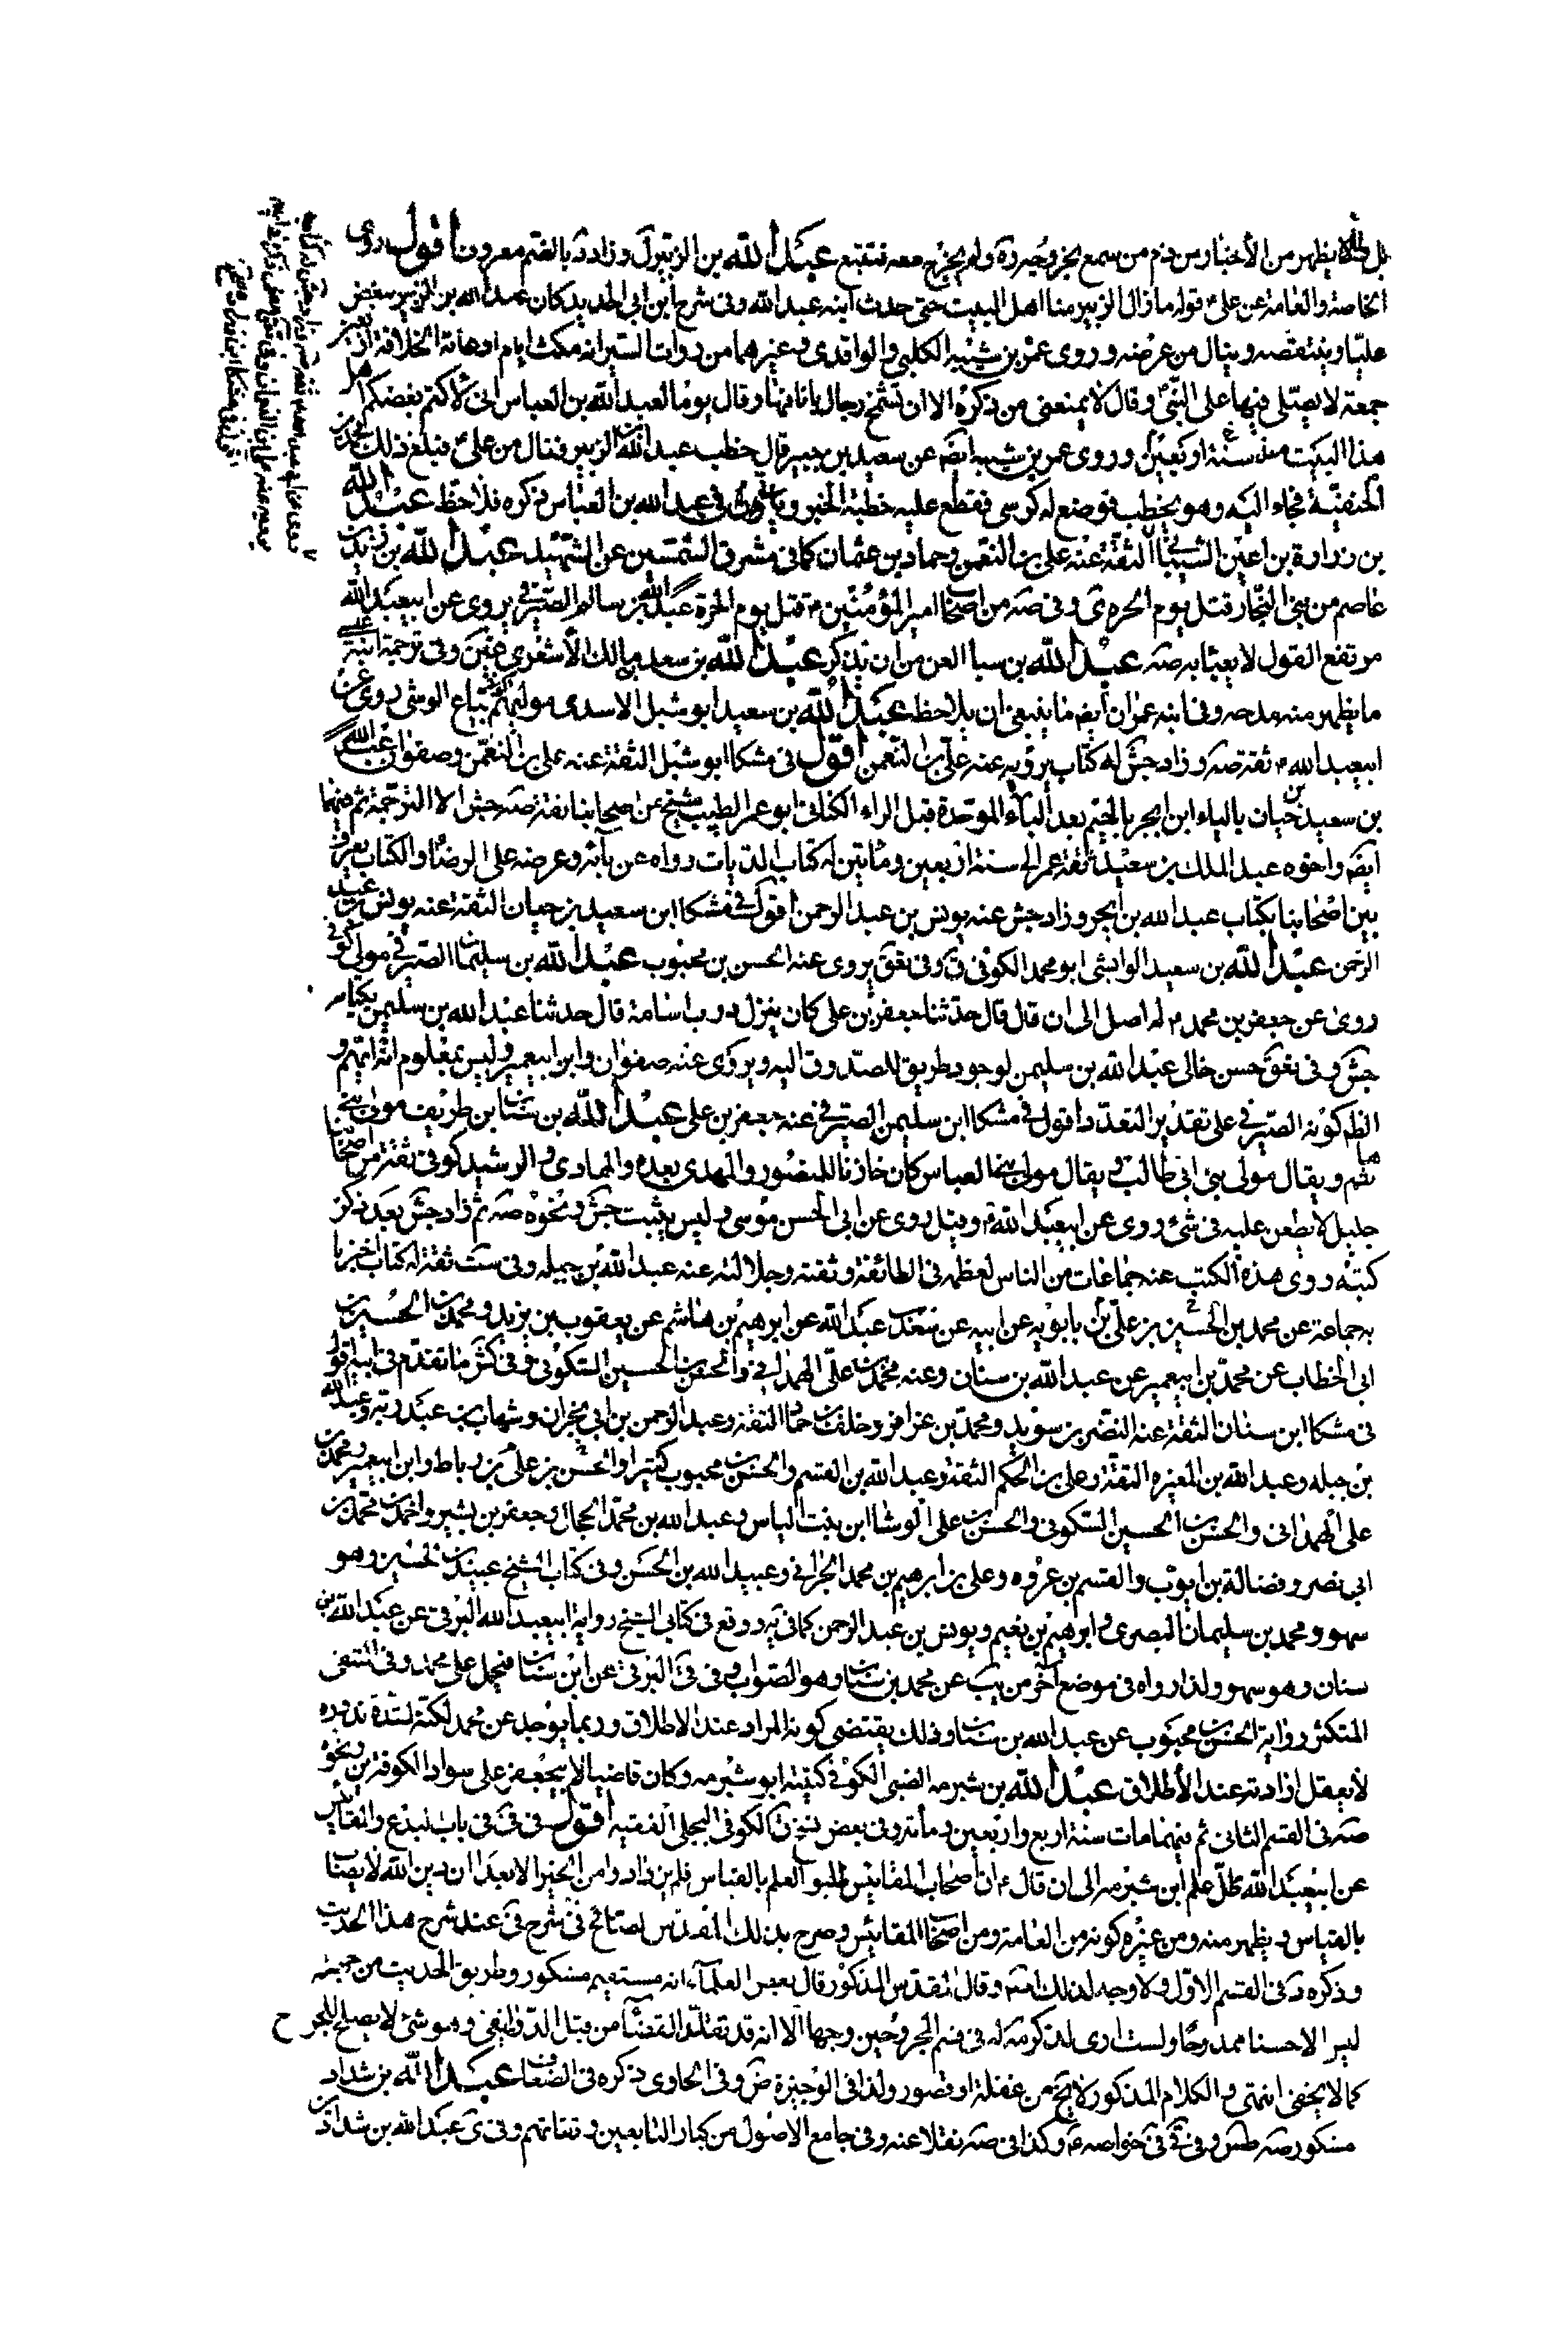 بل لا يظهر من الأخبار من ذم من سمع بخروجه ولم يخرج معه فتتبع عبد الله بن الزبير ل وزاد د بالضم معروف أقول روى
الخاصة والعامة عن علي ع قوله ما زال الزبير منا اهل البيت حتى حدث ابنه عبد الله وفي شرح ابن ابي الحديد كان عبد الله بن الزبير يبغض
عليا وينتقصه وينال من عرضه وروى عمر بن شبيه الكلبي والواقدي وغيرهما من رواة السير انه مكث ايام ادعائه الخلافة اربعين
جمعة لا يصلى فيها على النبي وقال لا يمنعني من ذكره الا ان تشمخ رجال بانافها وقال يوما لعبد الله بن العباس اني لاكتم بغضكم اهل
هذا البيت منذ سنة اربعين وروى عمر بن شبيه ايضا عن سعيد بن جبير قال خطب عبد الله بن الزبير فنال من علي ع فبلغ ذلك محمد بن
الحنفية فجاء اليه وهو يخطب فوضع له كرسي فقطع عليه خطبة الخبر وياتي في عبد الله بن العباس ذكره فلاحظ عبد الله
بن زرارة بن اعين الشيباني الثقة عنه علي بن النعمن وحماد بن عثمان كما في مشرق الشمسين عن الشهيد عبد الله بن زيد بن
عاصم من بني النجار قتل يوم الحره ي وفي صه من اصحاب امير المؤمنين ع قتل يوم الحرة عبد الله بن سالم الصيرفي يروى عن ابيعبد الله
مرتفع القول لا يعبأ به صه عبد الله بن سبا العن من ان يذكر عبد الله بن سعد بن مالك الأشعري وفي ترجمة ابنه
ما يظهر منه مدحه وفي ابنه عمران ايضا ما ينبغي ان يلاحظ عبد الله بن سعيد ابو شبل الاسدي مولاهم بياع الوشى روى عن
ابيعبد الله ع ثقة صه وزاد جش له كتاب يرويه عنه علي بن النعمن أقول في مشكا ابو شبل الثقة عنه علي بن النعمن وصفوان عبد الله
بن سعيد بن حيان بالياء ابن ابجر بالجيم بعد الباء الموحدة قبل الراء الكناني ابو عمر الطبيب شيخ من اصحابنا ثقة صه جش الا الترجمة ثم فيهما
ايضا واخوه عبد الملك بن سعيد ثقة عمر الى سنة اربعين ومأتين له كتاب الديات رواه عن بائه وعرضه على الرضا ع والكتاب يعرف
بين اصحابنا بكتاب عبد الله بن ابجر وزاد جش عنه يونس بن عبد الرحمن أقول في مشكا ابن سعيد بن حيان الثقة عنه يونس بن عبد
الرحمن عبد الله بن سعيد الوابشي ابو محمد الكوفي ق وفي تعق يروى عنه الحسن بن محبوب عبد الله بن سليمان الصيرفي مولى كوفي
روى عن جعفر بن محمد ع له اصل الى ان قال قال حدثنا جعفر بن علي كان ينزل درب اسامة قال حدثنا عبد الله بن سليمن بكتابه
جش وفي تعق حسن خالي عبد الله بن سليمن لوجود طريق للصدوق اليه ويروى عنه صفوان وابن ابيعمير وليس بمعلوم انه ايهم و
الظم كونه الصيرفي على تقدير التعدد اقول في مشكا ابن سليمن الصيرفي عنه جعفر بن علي عبد الله بن سنان بن طريف مولى بني
هاشم ويقال مولى بني ابي طالب ويقال مولى بني العباس كان خازنا للمنصور والمهدي بعده والهادي والرشيد كوفي ثقة من اصحابنا
جليل لا يطعن عليه في شئ روى عن ابيعبد الله ع وقيل روى عن ابي الحسن موسى وليس بثبت جش ونحوه صه ثم زاد جش بعد ذكر
كتبه روى هذه الكتب عنه جماعات من الناس لعظمه في الطائفة وثقته وجلالته عنه عبد الله بن جبيله وفي ست ثقة له كتاب اخبرنا
به جماعة عن محمد بن الحسين بن علي بن بابويه عن ابيه عن سعد بن عبد الله عن ابرهيم بن هاشم عن يعقوب بن يزيد ومحمد بن الحسين بن
ابي الخطاب عن محمد بن ابيعمير عن عبد الله بن سنان وعنه محمد بن علي الهمداني والحسن بن الحسين السكوني وفي كش ما تقدم في ابيه اقول
في مشكا ابن سنان الثقة عنه النضر بن سويد ومحمد بن عذافر وخلف بن حماد الثقة وعبد الرحمن بن ابي نجران وشهاب بن عبد ربه وعبد الله
بن جبله وعبد الله بن المغيره الثقة وعلي بن الحكم الثقة وعبد الله بن القسم والحسن بن محبوب كثيرا والحسن بن علي بن رباط وابن ابيعمير ومحمد بن
علي الهمداني والحسن بن الحسين السكوني والحسن بن علي الوشا ابن بنت الياس وعبد الله بن محمد الحجال وجعفر بن بشير واحمد بن محمد بن
ابي نصر وفضالة بن ايوب والقسم بن عروه وعلي بن ابرهيم بن محمد الجزاني وعبيد الله بن الحسن وفي كتاب الشيخ عبيد بن الحسين وهو
سهو ومحمد بن سليمان البصري وابرهيم بن نعيم ويونس بن عبد الرحمن كما في يه ووقع في كتابي الشيخ رواية ابيعبد الله البرقي عن عبد الله بن
سنان وهو سهو ولذا رواه في موضع آخر من يب عن محمد بن سنان وهو الصواب وفي في البرقي عن ابن سنان فيحمل على محمد وفي المنتقى
المتكثر رواية الحسن بن محبوب عن عبد الله بن سنان وذلك يقتضى كونه المراد عند الاطلاق وربما يوجد عن محمد لكنه لشدة ندوره
لا يعقل ارادته عند الأطلاق عبد الله بن شبرمه الضبي الكوفي كنيته ابو شبرمه وكان قاضيا لابيجعفر على سواد الكوفة ين ونحوه
صه في القسم الثاني ثم فيهما مات سنة اربع واربعين ومأته وفي بعض نسخ ق الكوفي البجلي الفقيه اقول في في باب البدع والمقائيس
عن ابيعبد الله ضل علم ابن شبرمه الى ان قال ع ان اصحاب المقائيس طلبوا العلم بالقياس فلم يزدادوا من الخير الا بعدا ان دين الله لا يصاب
بالقياس ويظهر منه ومن غيره كونه من العامة ومن اصحاب المقائيس وصرح بذلك المقدس الصالح في شرح في عند شرح هذا الحديث
وذكره د في القسم الاول ولا وجه لذلك وقال المقدس المذكور قال بعض العلماء انه مستقيم مشكور وطريق الحديث من جهته
ليس الا حسنا ممدوحا ولست ارى لذكر مه له في قسم المجروحين وجها الا انه قد تقلد القضا من قبل الدوانيقي وهو شئ لا يصلح للجرح
كما لا يخفى انتهى والكلام المذكور لا يخ من غفلة او قصور ولذا في الوجيزة ض وفي الحاوى ذكره في الضعاف عبد الله بن شداد
مشكور صه طس وفي في خواصه ع وكذا في صه نقلا عنه وفي جامع الاصول من كبار التابعين وثقاتهم وفي ى عبد الله بن شداد بن